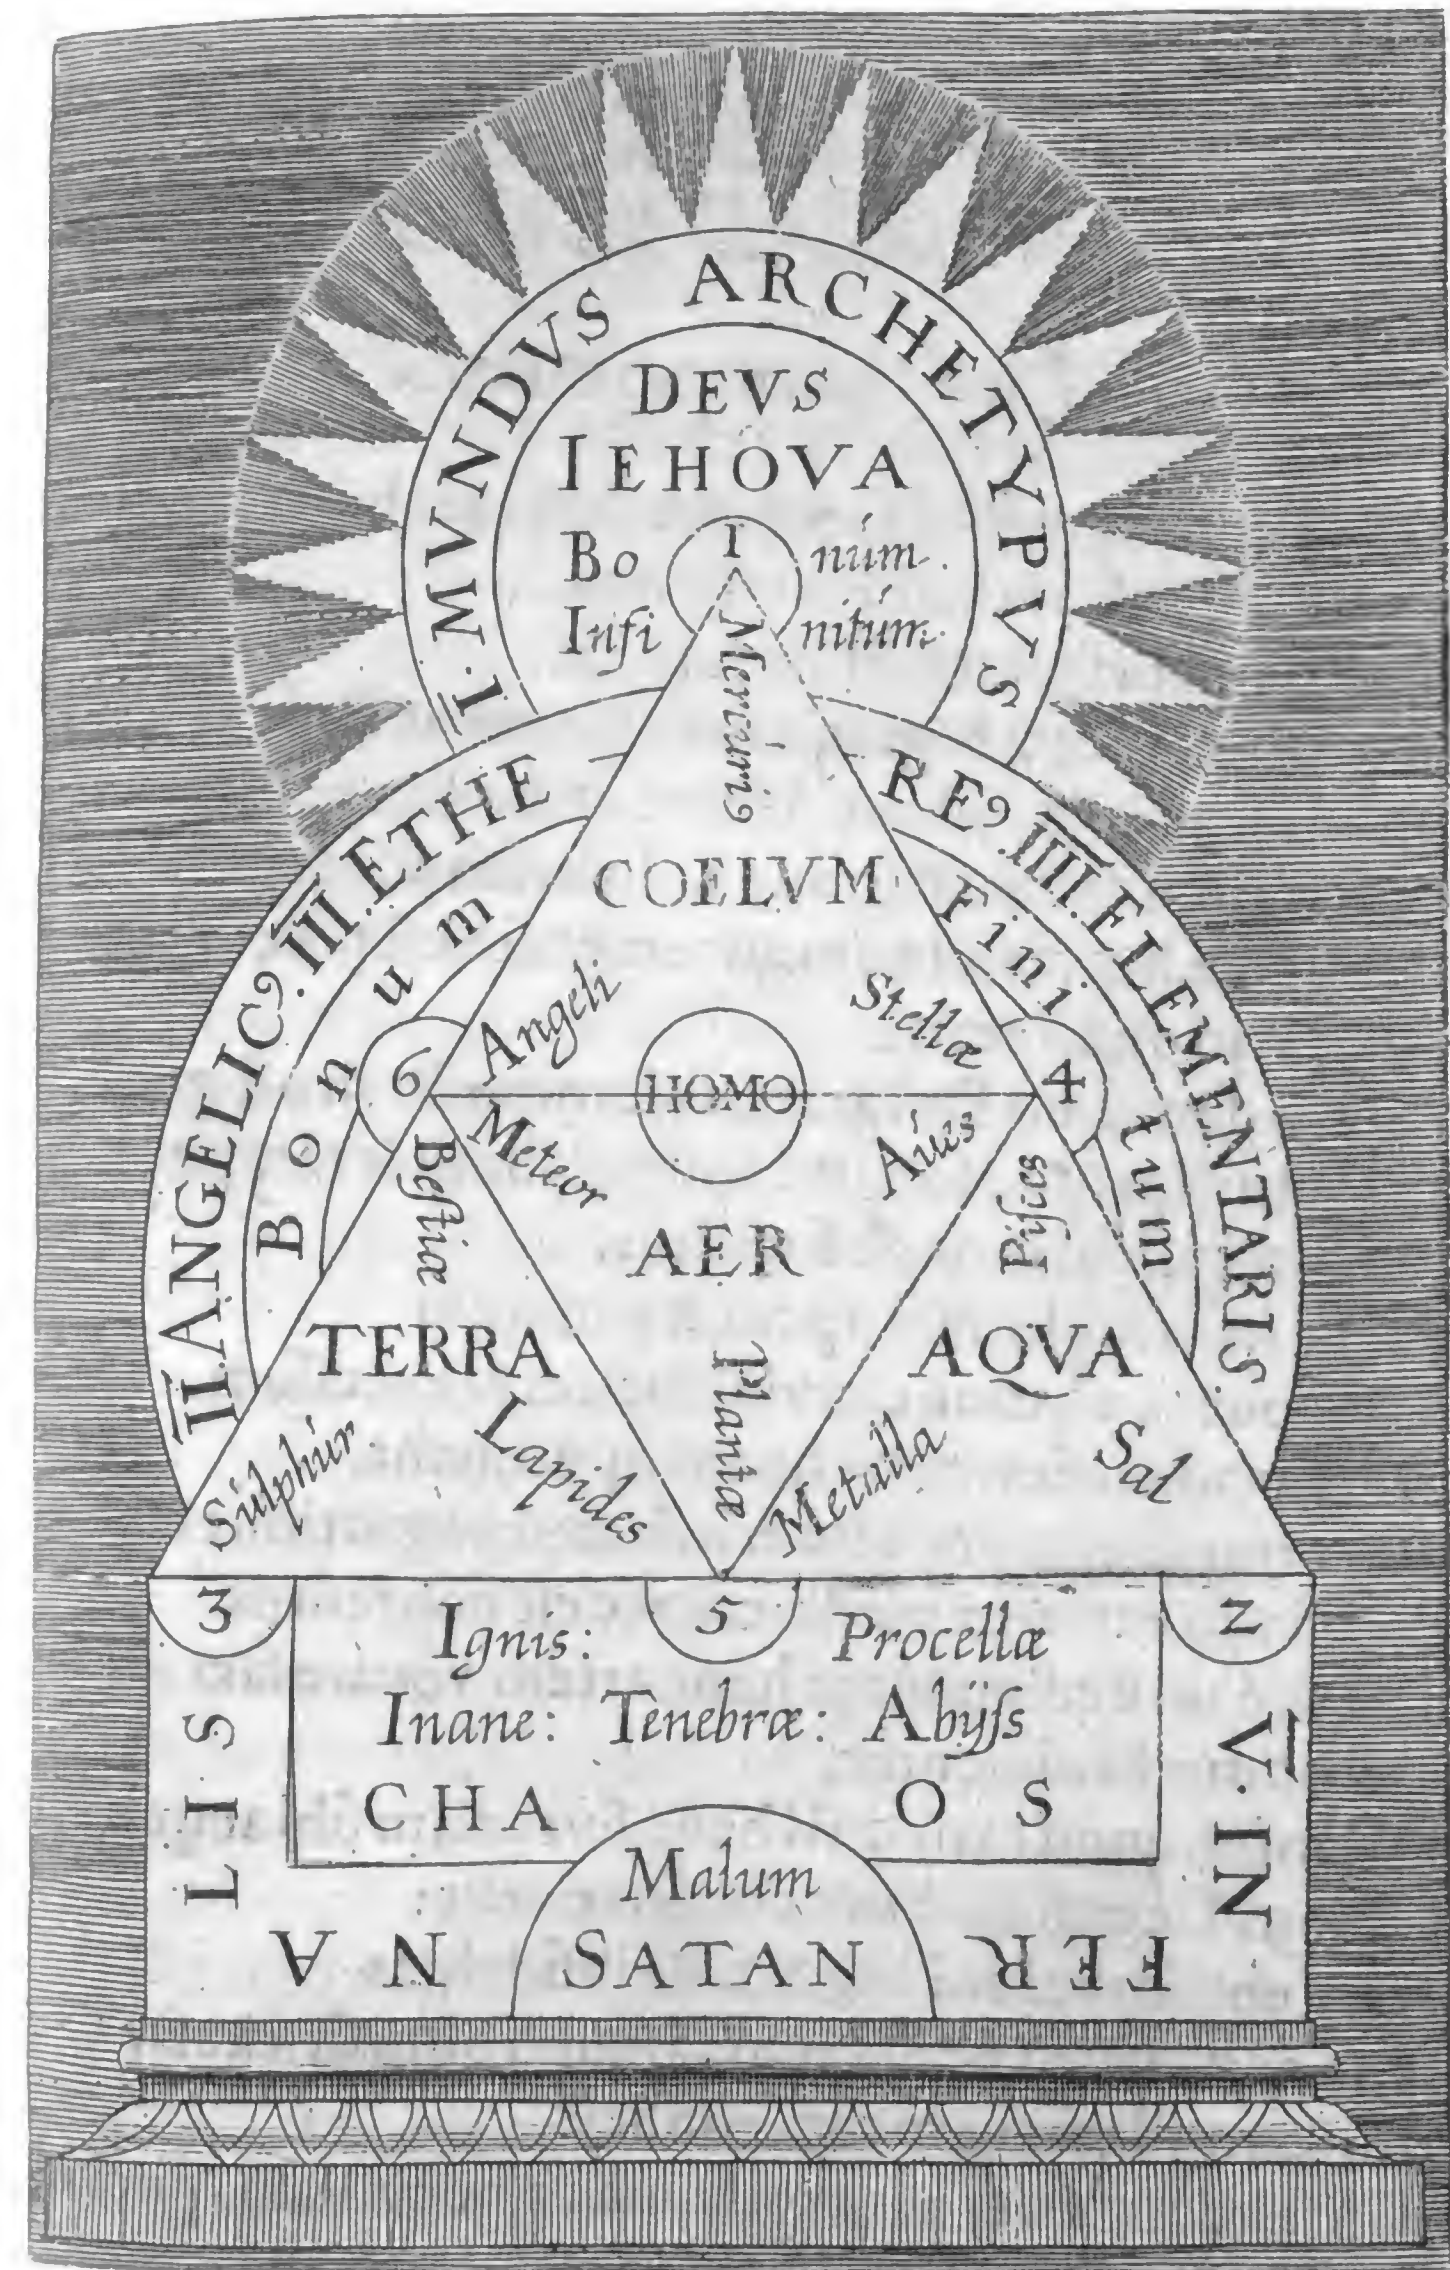 I. MVNDVS ARCHETYPVS
DEVS
IEHOVA
1
Bo núm.
Infi nitúm.
Mercúriꝰ
II. ANGELICꝰ. III. ETHE REꝰ. IIII. ELEMENTARIS
Bonum
Finitum
COELVM
Angeli
Stellæ
6
HOMO
4
Meteor
Aúis
Bestiæ
Pisces
AER
TERRA
AQVA
Plantæ
Súlphúr.
Lapides
Metalla
Sal
3
5
2
Ignis: Procellæ
Inane: Tenebræ: Abÿſs
CHA OS
V. IN
FER
NA
LIS
Malum
SATAN